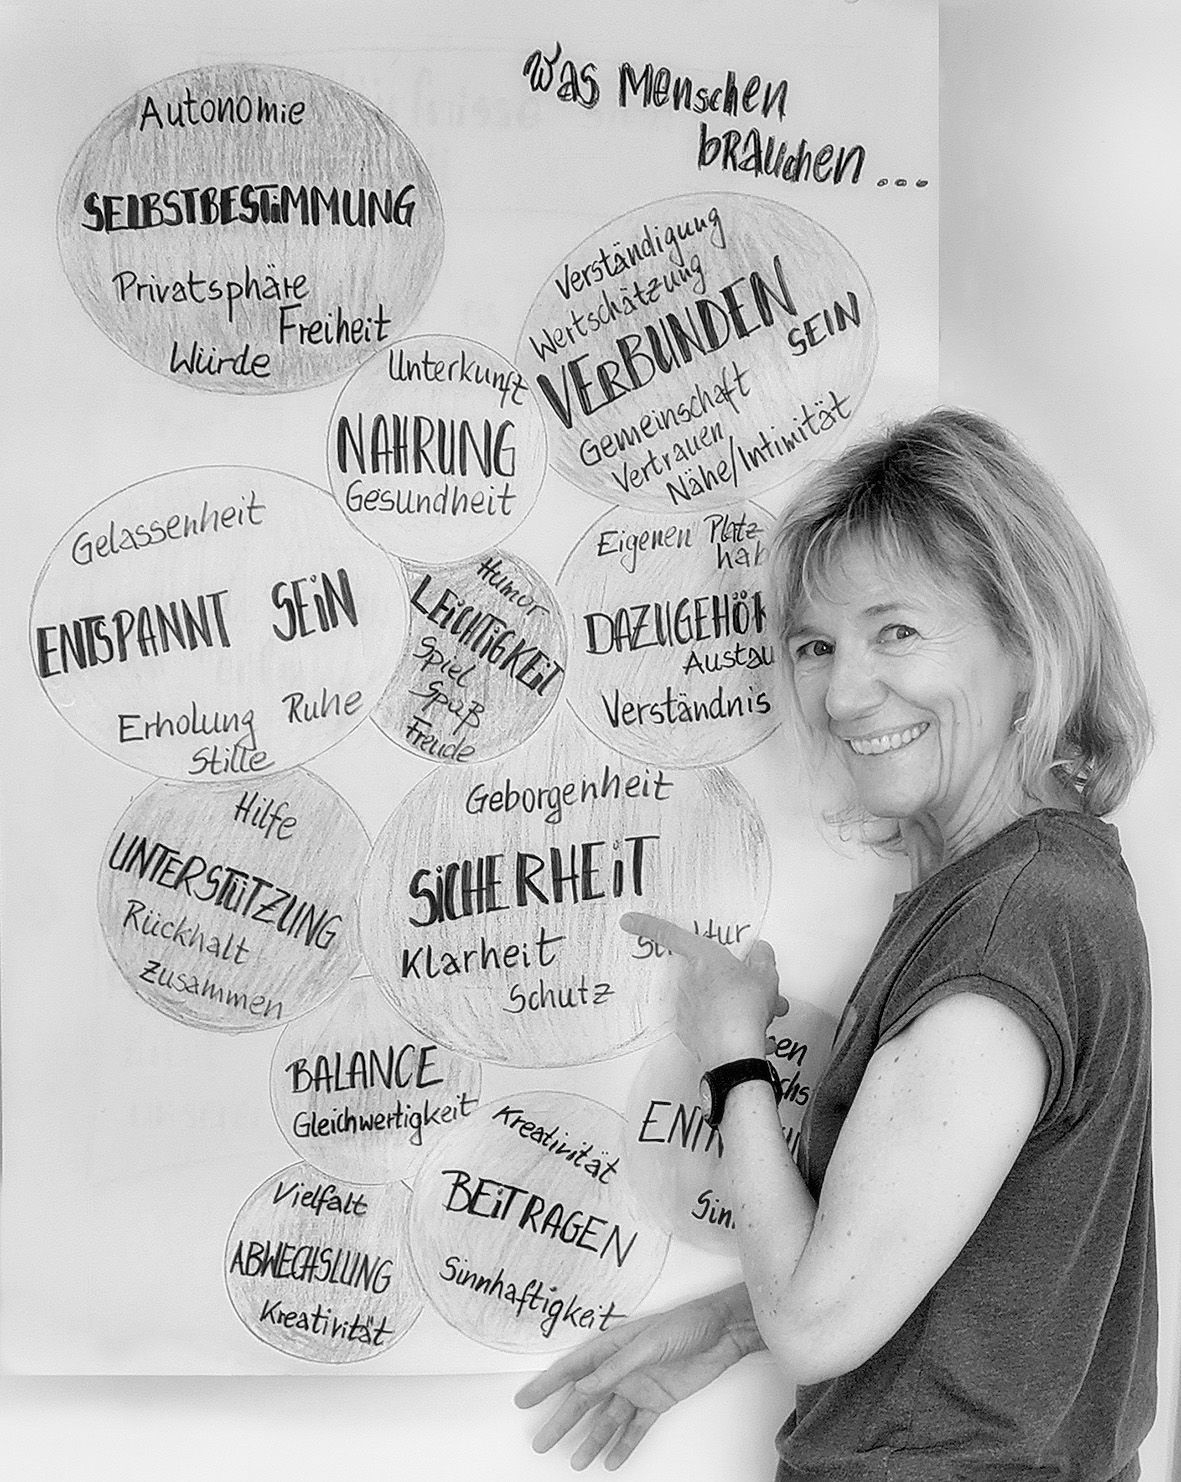 Was Menschen
brauchen ...
Autonomie
SELBSTBESTIMMUNG
Privatsphäre
Freiheit
Würde
Verständigung
Wertschätzung
VERBUNDEN
SEIN
Gemeinschaft
Vertrauen
Nähe/Intimität
Unterkunft
NAHRUNG
Gesundheit
Gelassenheit
ENTSPANNT SEiN
Erholung Ruhe
Stille
Humor
LEiCHTiGKEiT
Spiel
Spaß
Freude
Eigenen Platz
Verständnis
Hilfe
UNTERSTÜTZUNG
Rückhalt
Zusammen
Geborgenheit
SiCHERHEiT
Klarheit
Schutz
BALANCE
Gleichwertigkeit
Kreativität
BEiTRAGEN
Sinnhaftigkeit
Vielfalt
ABWECHSLUNG
Kreativität